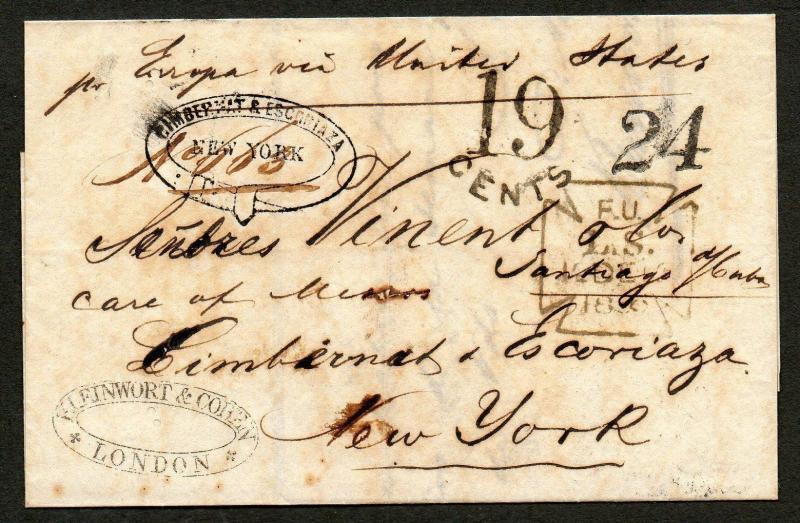 pr Europa via United States
CIMBERNAT & ESCORIAZA
NEW YORK
19
CENTS
24
Señores Vinent & Co.
Santiago d Cuba
F.U.
care of Messrs
Cimbernat & Escoriaza
New York
KLEINWORT & COHEN
LONDON